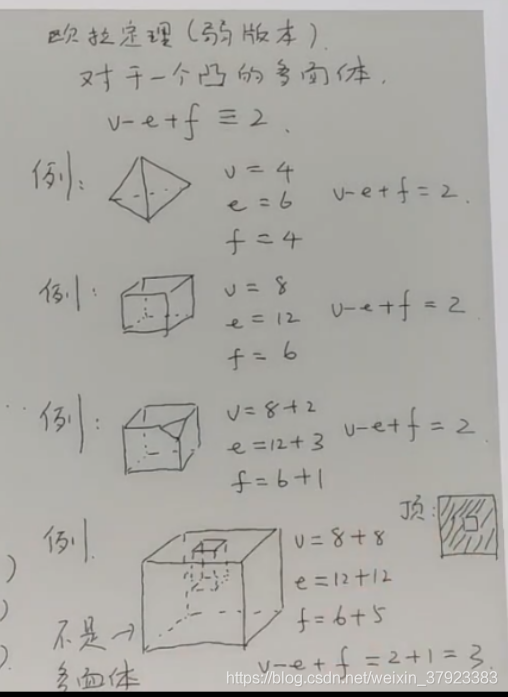 欧拉定理(弱版本).
对于一个凸的多面体.
v-e+f ≡ 2.
例: v = 4
e = 6
f = 4
v-e+f = 2.
例: v = 8
e = 12
f = 6
v-e+f = 2
例: v = 8+2
e = 12+3
f = 6+1
v-e+f = 2.
例.
不是→
多面体
v = 8+8
e = 12+12
f = 6+5
v-e+f = 2+1 = 3.
顶:
https://blog.csdn.net/weixin_37923383